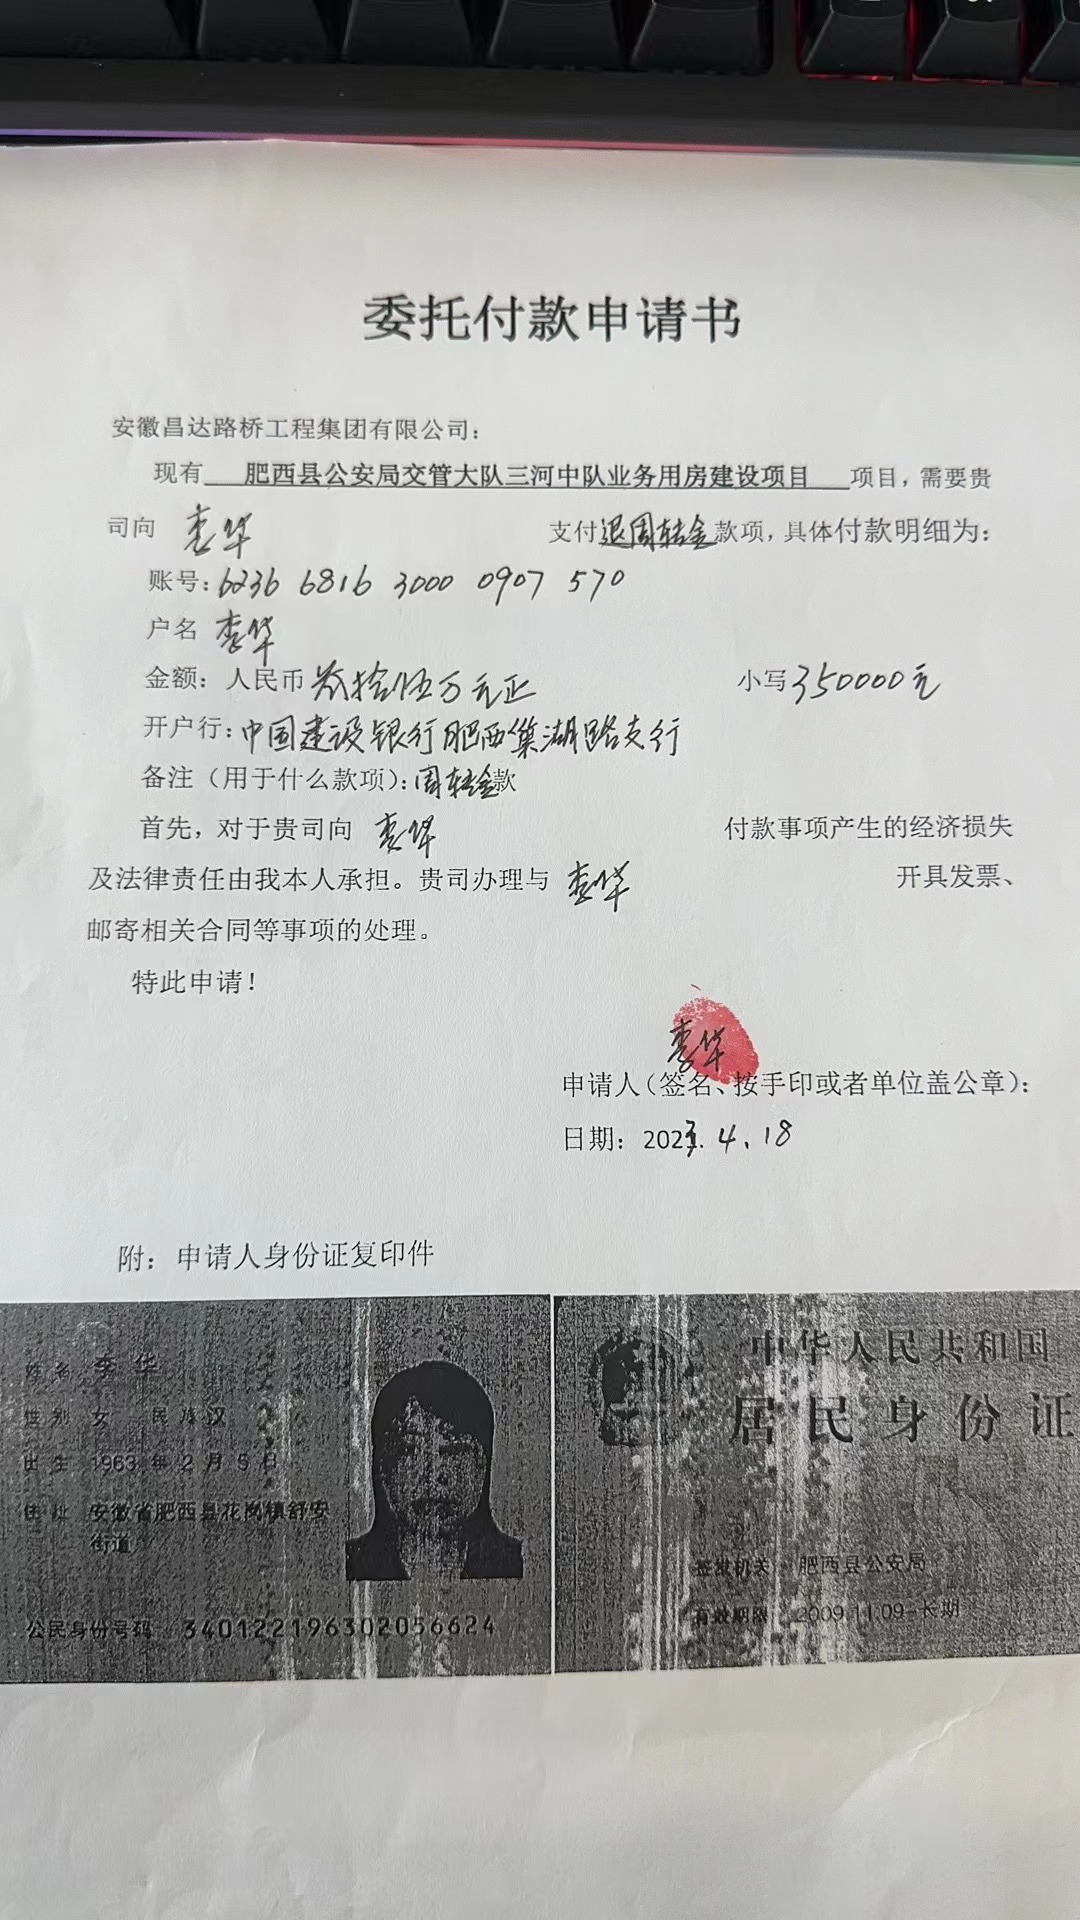 委托付款申请书
安徽昌达路桥工程集团有限公司：
现有 肥西县公安局交管大队三河中队业务用房建设项目 项目，需要贵
司向 李华 支付退周转金款项，具体付款明细为：
账号：6236 6816 3000 0907 570
户名 李华
金额：人民币 叁拾伍万元正 小写350000元
开户行：中国建设银行肥西巢湖路支行
备注（用于什么款项）：周转金款
首先，对于贵司向 李华 付款事项产生的经济损失
及法律责任由我本人承担。贵司办理与 李华 开具发票、
邮寄相关合同等事项的处理。
特此申请！
李华
申请人（签名、按手印或者单位盖公章）：
日期：2023.4.18
附：申请人身份证复印件
姓名 李华
性别 女 民族 汉
出生 1963年2月5日
住址 安徽省肥西县花岗镇舒安
街道
公民身份号码 340122196302056624
中华人民共和国
居民身份证
签发机关 肥西县公安局
有效期限 2009.11.09-长期